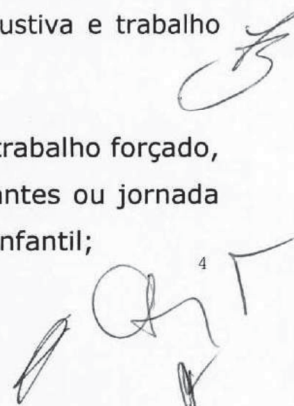 ustiva e trabalho
trabalho forçado,
antes ou jornada
nfantil;
4